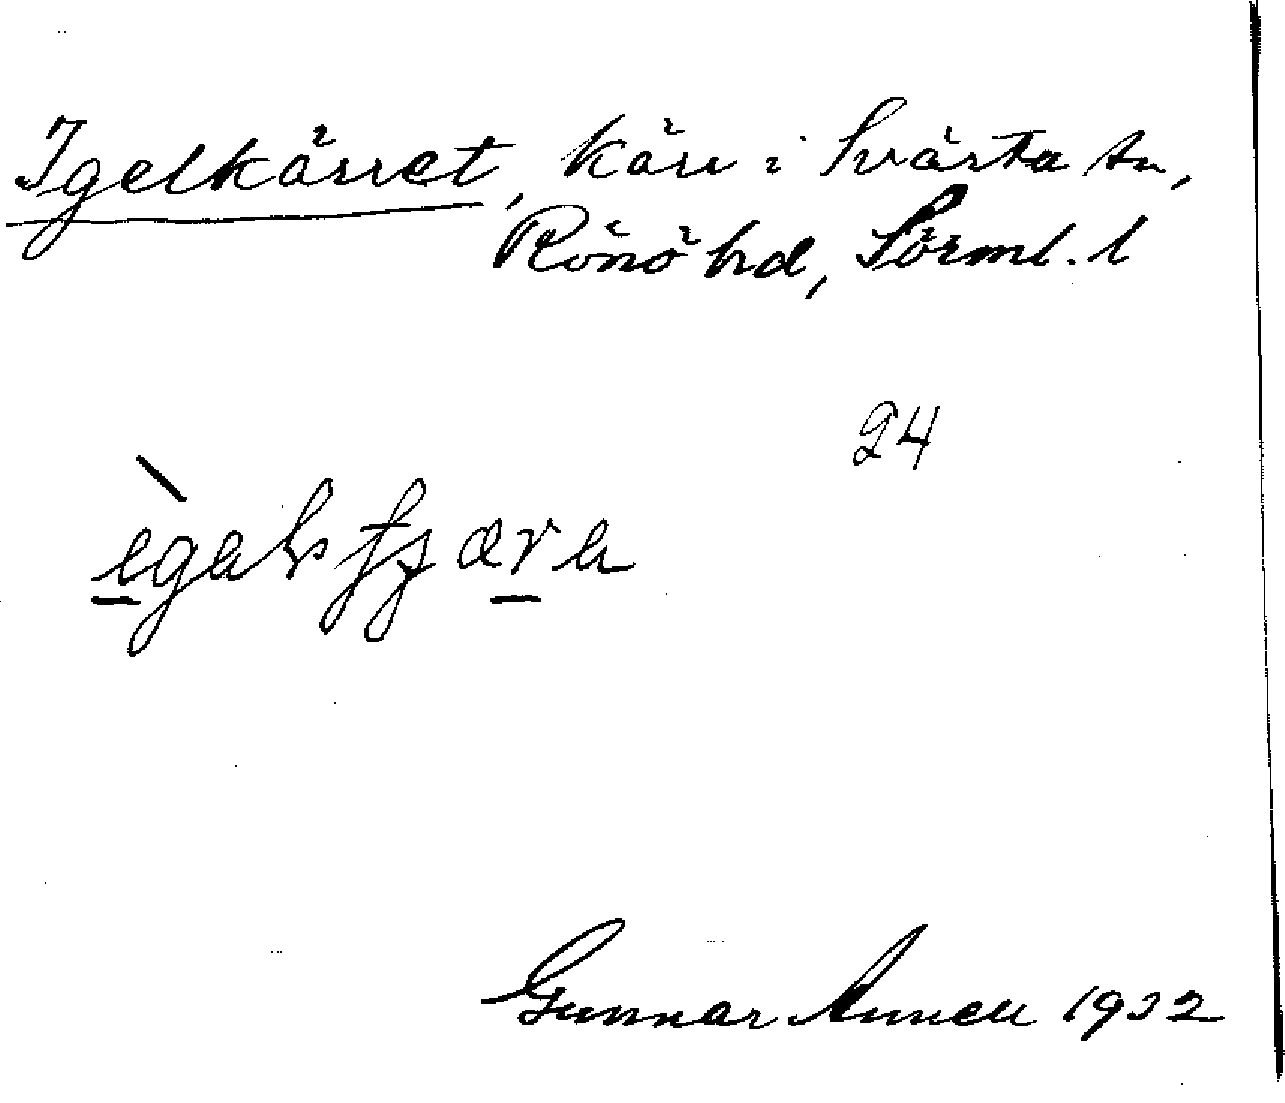 Igelkärret, kärr i Svärta sn,
Rönö hd, Sörml. l
24
Gunnar Annell 1932